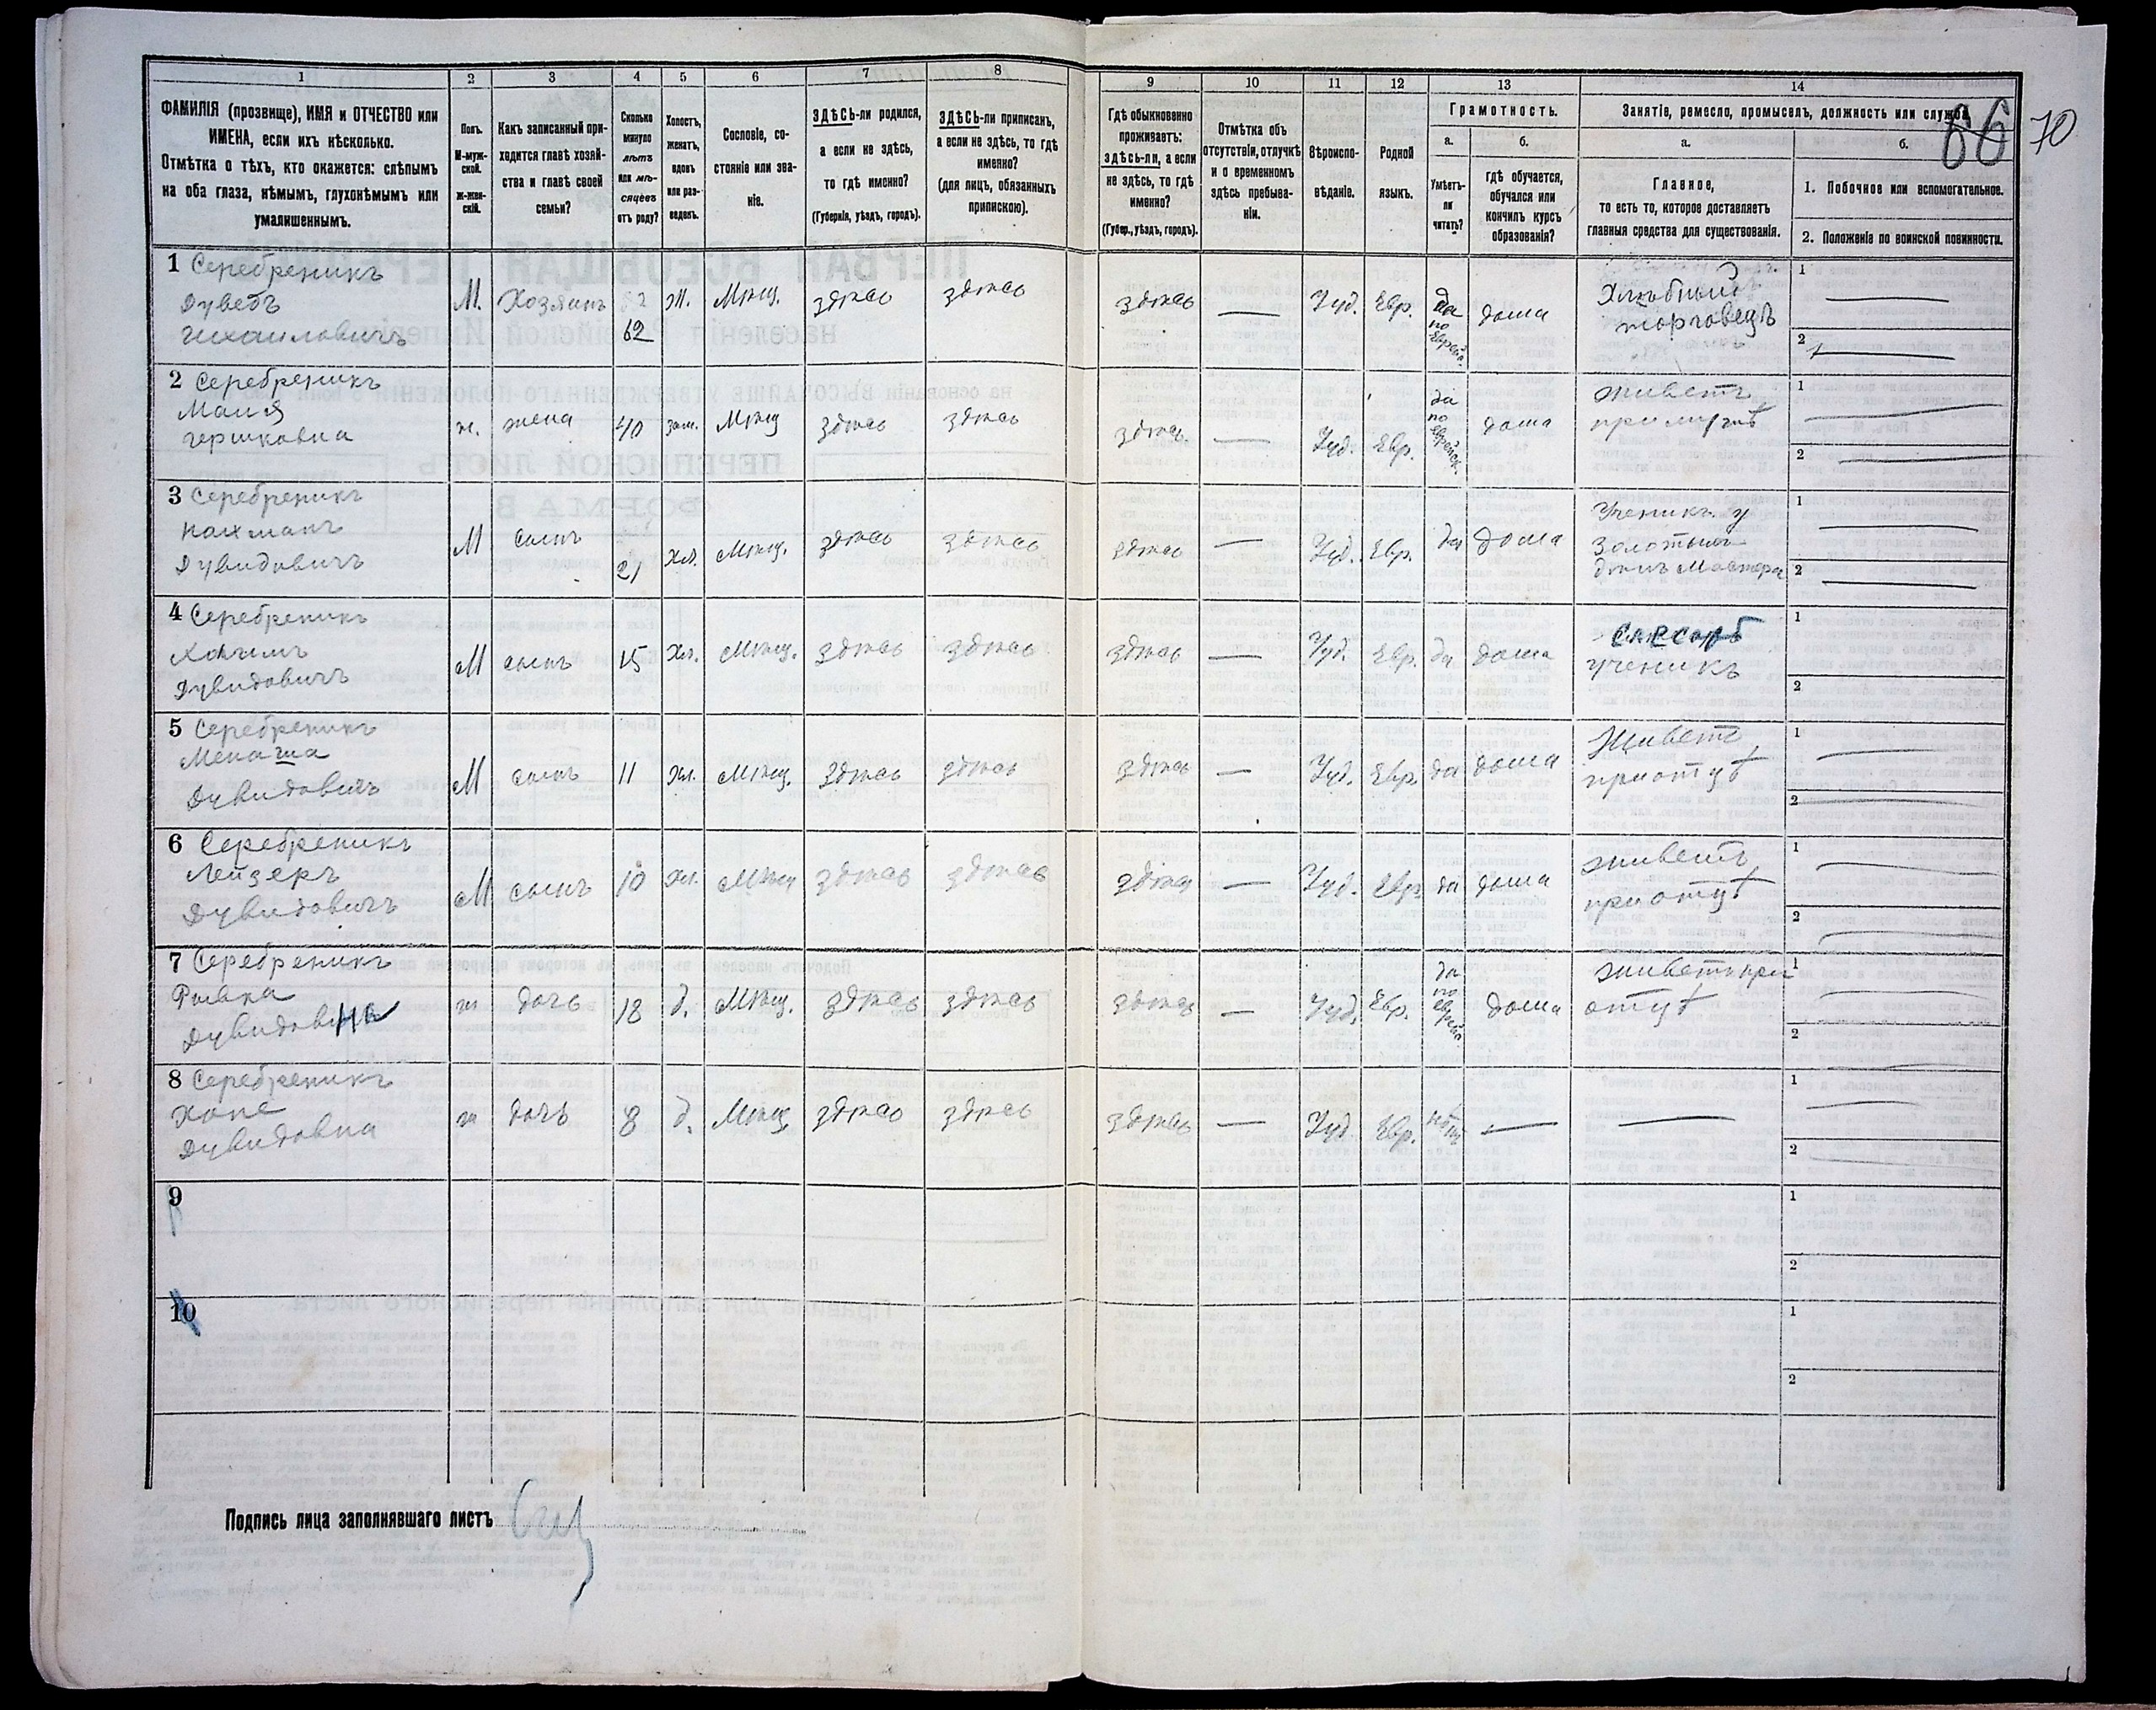 1 2 3 4 5 6 7 8 9 10 11 12 13 14
ФАМИЛІЯ (прозвище), ИМЯ и ОТЧЕСТВО или
ИМЕНА, если ихъ нѣсколько.
Отмѣтка о тѣхъ, кто окажется: слѣпымъ
на оба глаза, нѣмымъ, глухонѣмымъ или
умалишеннымъ.
Полъ.
М-муж-
ской.
Ж-жен-
скій.
Какъ записанный при-
ходится главѣ хозяй-
ства и главѣ своей
семьи?
Сколько
минуло
лѣтъ
или мѣ-
сяцевъ
отъ роду?
Холостъ,
женатъ,
вдовъ
или раз-
веденъ.
Сословіе, со-
стояніе или зва-
ніе.
ЗДѢСЬ-ли родился,
а если не здѣсь,
то гдѣ именно?
(Губернія, уѣздъ, городъ).
ЗДѢСЬ-ли приписанъ,
а если не здѣсь, то гдѣ
именно?
(для лицъ, обязанныхъ
припискою).
Гдѣ обыкновенно
проживаетъ:
здѣсь-ли, а если
не здѣсь, то гдѣ
именно?
(Губер., уѣздъ, городъ).
Отмѣтка объ
отсутствіи, отлучкѣ
и о временномъ
здѣсь пребыва-
ніи.
Вѣроиспо-
вѣданіе.
Родной
языкъ.
Грамотность.
а.
Умѣетъ-
ли
читать?
б.
гдѣ обучается,
обучался или
кончилъ курсъ
образованія?
Занятіе, ремесло, промыселъ, должность или служба.
66 70
а.
Главное,
то есть то, которое доставляетъ
главныя средства для существованія.
б.
1. Побочное или вспомогательное.
2. Положеніе по воинской повинности.
1 Серебреникъ
Дуведъ
Ихаиловичъ
М. Хозяинъ 62 Ж. Мѣщ. здѣсь здѣсь здѣсь — Іуд. Евр. да по Еврей. дома
Хлѣбный
торговецъ
1 —
2 —
2 Серебреникъ
Маля
Гершковна
ж. жена 40 зам. Мѣщ здѣсь здѣсь здѣсь — Іуд. Евр. да по еврейск. дома
живетъ
при мужѣ
1 —
2 —
3 Серебреникъ
Нахманъ
Дувидовичъ
М сынъ 21 Хол. Мѣщ. здѣсь здѣсь здѣсь — Іуд. Евр. да дома
Ученикъ у
Золотыхъ
дѣлъ Мастера
1 —
2 —
4 Серебреникъ
Дувидовичъ
М сынъ 15 Хол. Мѣщ. здѣсь здѣсь здѣсь — Іуд. Евр. да дома
ученикъ
1
2
5 Серебреникъ
Менаша
Дувидовичъ
М сынъ 11 Хол. Мѣщ. здѣсь здѣсь здѣсь — Іуд. Евр. да дома
Живетъ
при отцѣ
1 —
2 —
6 Серебреникъ
Лейзеръ
Дувидовичъ
М сынъ 10 Хол. Мѣщ здѣсь здѣсь здѣсь — Іуд. Евр. да дома
живетъ
при отцѣ
1 —
2 —
7 Серебреникъ
Ривка
Дувидовна
ж дочь 18 д. Мѣщ. здѣсь здѣсь здѣсь — Іуд. Евр. да по еврей. дома
живетъ при
отцѣ
1 —
2 —
8 Серебреникъ
Хане
Дувидовна
ж дочь 8 д. Мѣщ. здѣсь здѣсь здѣсь — Іуд Евр. нѣтъ — —
1 —
2 —
9
1
2
10
1
2
Подпись лица заполнявшаго листъ